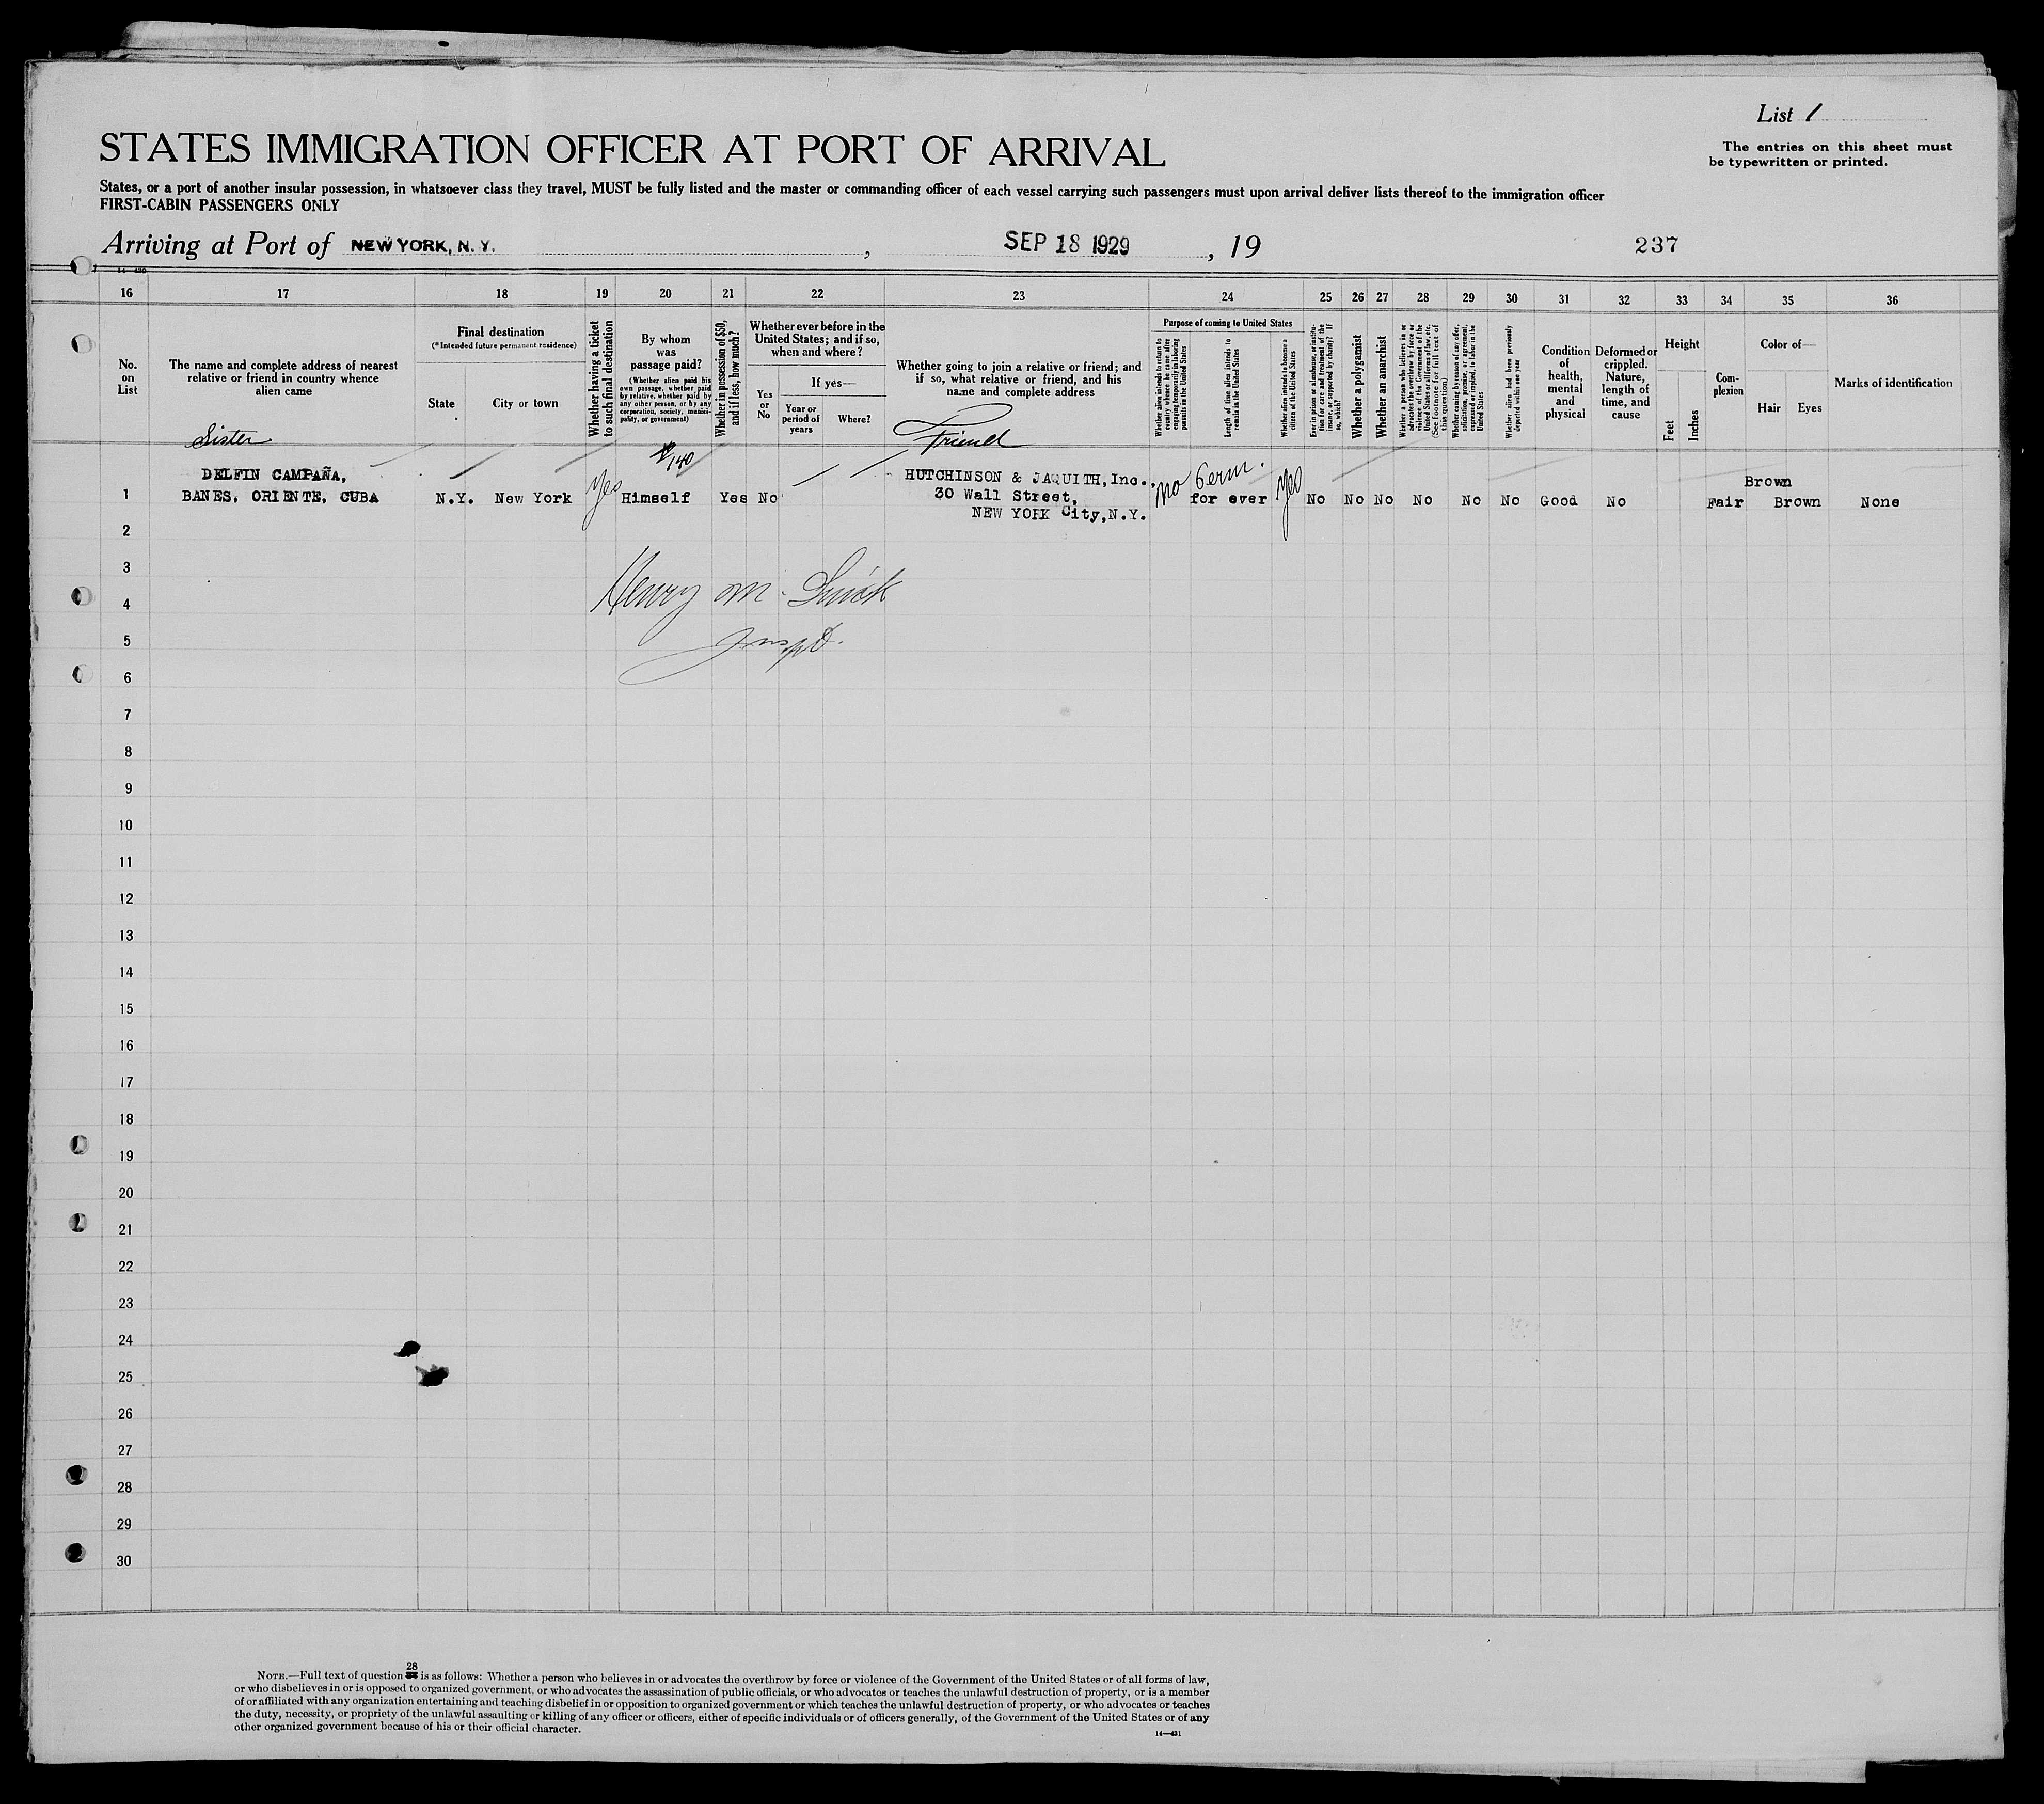 List 1
STATES IMMIGRATION OFFICER AT PORT OF ARRIVAL
The entries on this sheet must
be typewritten or printed.
States, or a port of another insular possession, in whatsoever class they travel, MUST be fully listed and the master or commanding officer of each vessel carrying such passengers must upon arrival deliver lists thereof to the immigration officer
FIRST-CABIN PASSENGERS ONLY
Arriving at Port of NEW YORK, N. Y. , SEP 18 1929 , 19
237
16 17 18 19 20 21 22 23 24 25 26 27 28 29 30 31 32 33 34 35 36
No.
on
List
The name and complete address of nearest
relative or friend in country whence
alien came
Final destination
(*Intended future permanent residence)
State
City or town
Whether having a ticket
to such final destination
By whom
was
passage paid?
(Whether alien paid his
own passage, whether paid
by relative, whether paid by
any other person, or by any
corporation, society, munici-
pality, or government)
Whether in possession of $50,
and if less, how much?
Whether ever before in the
United States; and if so,
when and where?
Yes
or
No
If yes—
Year or
period of
years
Where?
Whether going to join a relative or friend; and
if so, what relative or friend, and his
name and complete address
Purpose of coming to United States
Whether alien intends to return to
country whence he came after
engaging temporarily in laboring
pursuits in the United States
Length of time alien intends to
remain in the United States
Whether alien intends to become a
citizen of the United States
Ever in prison or almshouse, or institu-
tion for care and treatment of the
insane, or supported by charity? If
so, which?
Whether a polygamist
Whether an anarchist
Whether a person who believes in or
advocates the overthrow by force or
violence of the Government of the
United States or all forms of law, etc.
(See footnote for full text of
this question)
Whether coming by reason of any offer,
solicitation, promise, or agreement,
expressed or implied, to labor in the
United States
Whether alien had been previously
deported within one year
Condition
of
health,
mental
and
physical
Deformed or
crippled.
Nature,
length of
time, and
cause
Height
Feet
Inches
Com-
plexion
Color of—
Hair
Eyes
Marks of identification
Sister
Friend
$140
DELFIN CAMPAÑA,
HUTCHINSON & JAQUITH, Inc.,
No Perm. Yes
Brown
1 BANES, ORIENTE, CUBA N.Y. New York Yes Himself Yes No 30 Wall Street, for ever No No No No No No Good No Fair Brown None
NEW YORK City, N.Y.
2
3
Henry M. Quick
4
5
Inspt.
6
7
8
9
10
11
12
13
14
15
16
17
18
19
20
21
22
23
24
25
26
27
28
29
30
28
NOTE.—Full text of question is as follows: Whether a person who believes in or advocates the overthrow by force or violence of the Government of the United States or of all forms of law,
or who disbelieves in or is opposed to organized government, or who advocates the assassination of public officials, or who advocates or teaches the unlawful destruction of property, or is a member
of or affiliated with any organization entertaining and teaching disbelief in or opposition to organized government or which teaches the unlawful destruction of property, or who advocates or teaches
the duty, necessity, or propriety of the unlawful assaulting or killing of any officer or officers, either of specific individuals or of officers generally, of the Government of the United States or of any
other organized government because of his or their official character.
14—431